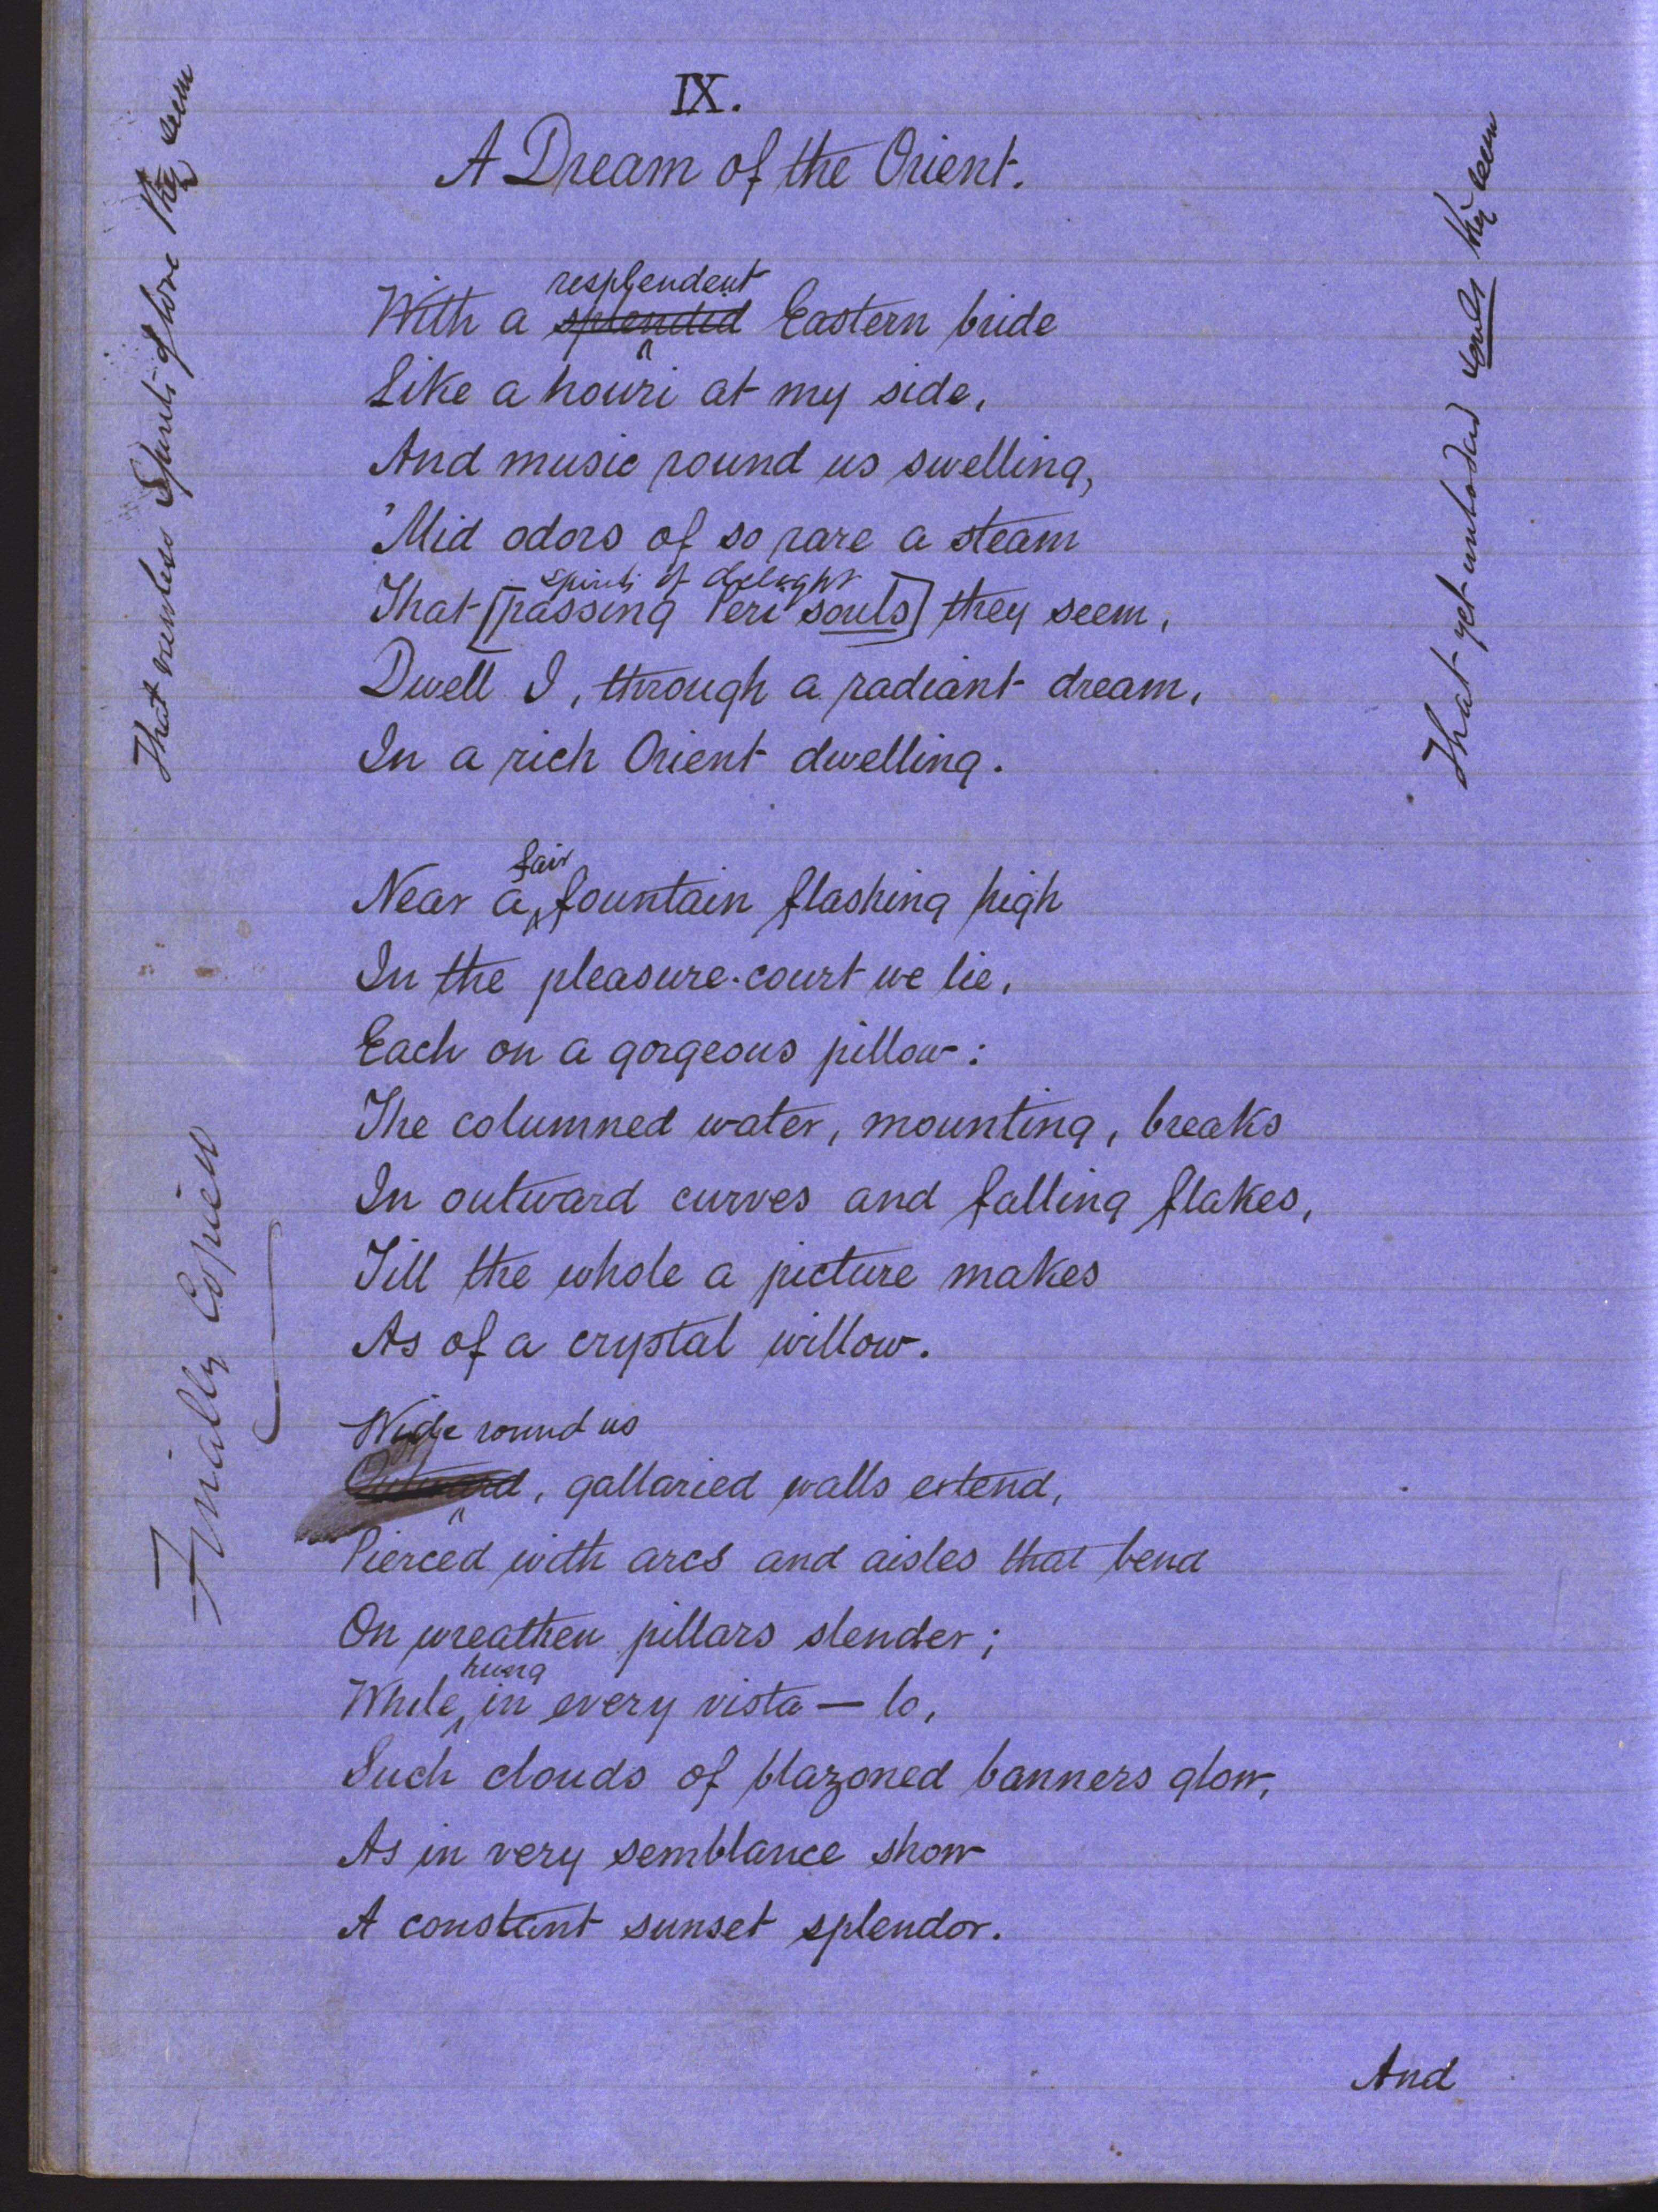 IX.
A Dream of the Orient.
resplendent
With a splendid Eastern bride
Like a houri at my side,
And music round us swelling,
'Mid odors of so rare a steam
spirits of delight
That [passing Peri souls] they seem,
Dwell I, through a radiant dream,
In a rich Orient dwelling.
fair
Near a fountain flashing high
In the pleasure-court we lie,
Each on a gorgeous pillow:
The columned water, mounting, breaks
In outward curves and falling flakes,
Till the whole a picture makes
As of a crystal willow.
Wide round us
Outward, gallaried walls extend,
Pierced with arcs and aisles that bend
On wreathen pillars slender;
hung
While, in every vista — lo,
Such clouds of blazoned banners glow,
As in very semblance show
A constant sunset splendor.
And
That viewless Spirits of love they seem
Finally Copied
That yet unbodied souls they seem